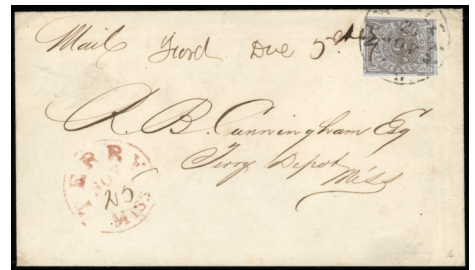 Mail Ford Due 5 cts
A. B. Cunningham Esq
Terry Depot
Miss
TERRY
NOV
25
MISS